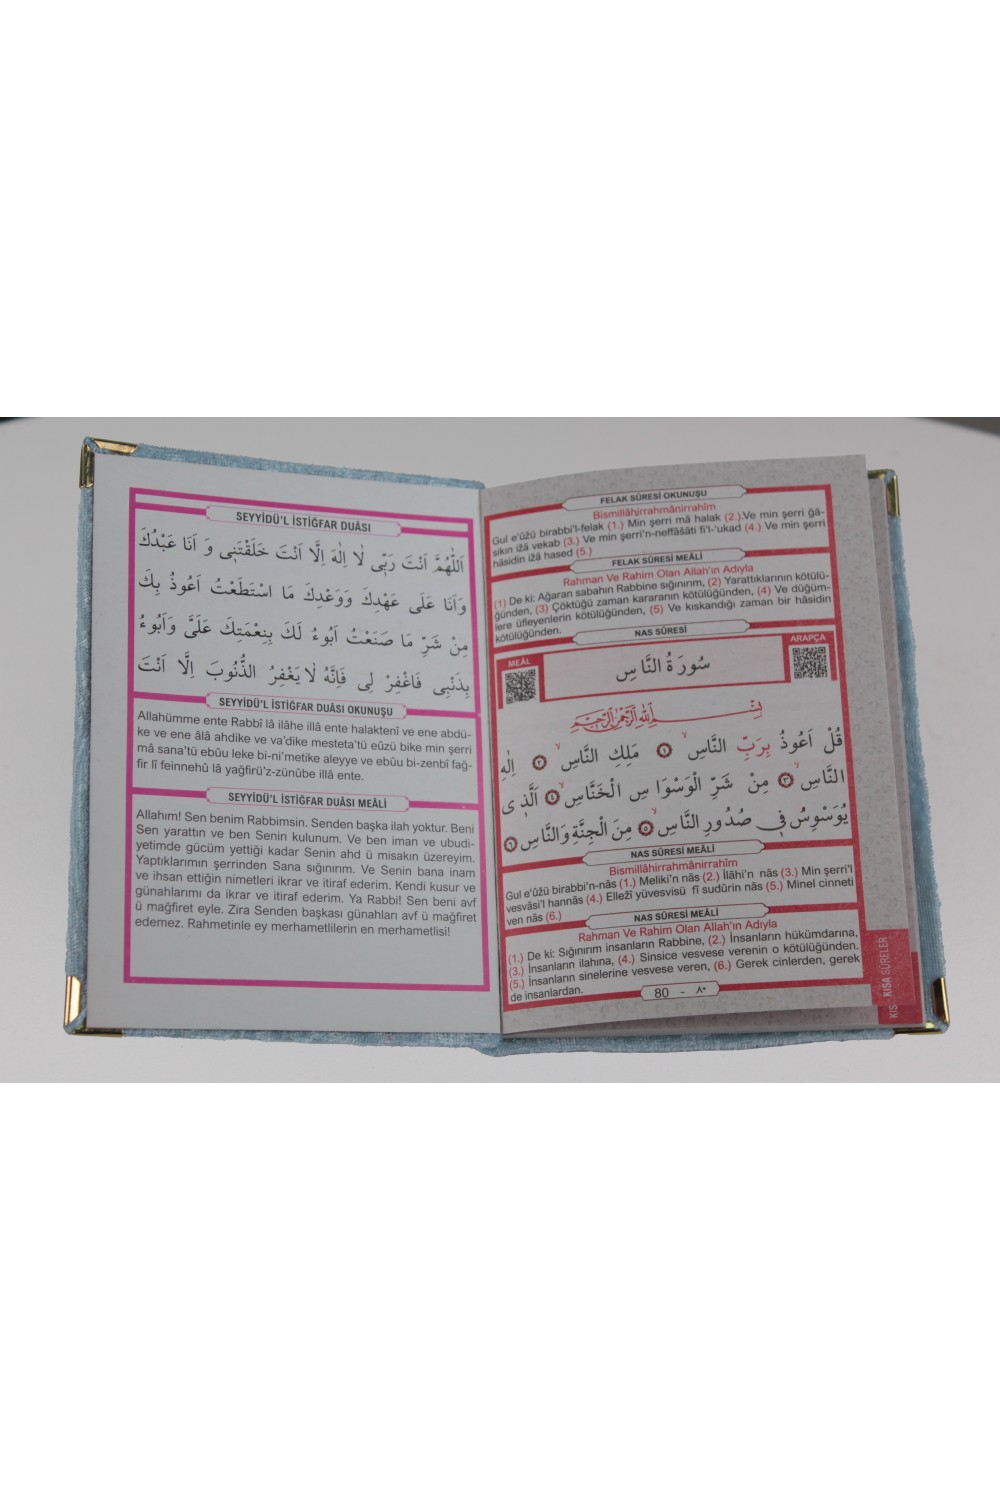 SEYYİDÜ'L İSTİĞFAR DUÂSI
اَللّٰهُمَّ اَنْتَ رَبّ۪ى لَا اِلٰهَ اِلَّا اَنْتَ خَلَقْتَن۪ى وَ اَنَا عَبْدُكَ
وَاَنَا عَلَى عَهْدِكَ وَوَعْدِكَ مَا اسْتَطَعْتُ اَعُوذُ بِكَ
مِنْ شَرِّ مَا صَنَعْتُ اَبُوءُ لَكَ بِنِعْمَتِكَ عَلَىَّ وَاَبُوءُ
بِذَنْبِى فَاغْفِرْ لِى فَاِنَّهُ لَا يَغْفِرُ الذُّنُوبَ اِلَّا اَنْتَ
SEYYİDÜ'L İSTİĞFAR DUÂSI OKUNUŞU
Allahümme ente Rabbî lâ ilâhe illâ ente halaktenî ve ene abdü-
ke ve ene âlâ ahdike ve va'dike mesteta'tü eûzü bike min şerri
mâ sana'tü ebûu leke bi-ni'metike aleyye ve ebûu bi-zenbî fağ-
fir lî feinnehû lâ yağfirü'z-zünûbe illâ ente.
SEYYİDÜ'L İSTİĞFAR DUÂSI MEÂLİ
Allahım! Sen benim Rabbimsin. Senden başka ilah yoktur. Beni
Sen yarattın ve ben Senin kulunum. Ve ben iman ve ubudi-
yetimde gücüm yettiği kadar Senin ahd ü misakın üzereyim.
Yaptıklarımın şerrinden Sana sığınırım. Ve Senin bana inam
ve ihsan ettiğin nimetleri ikrar ve itiraf ederim. Kendi kusur ve
günahlarımı da ikrar ve itiraf ederim. Ya Rabbi! Sen beni avf
ü mağfiret eyle. Zira Senden başkası günahları avf ü mağfiret
edemez. Rahmetinle ey merhametlilerin en merhametlisi!
FELAK SÛRESİ OKUNUŞU
Bismillâhirrahmânirrahîm
Gul e'ûžü birabbi'l-felak (1.) Min şerri mâ halak (2.).Ve min şerri ğâ-
sikın ižâ vekab (3.) Ve min şerri'n-neffâšâti fi'l-'ukad (4.) Ve min şerri
hâsidin ižâ hased (5.)
FELAK SÛRESİ MEÂLİ
Rahman Ve Rahim Olan Allah'ın Adıyla
(1) De ki: Ağaran sabahın Rabbine sığınırım, (2) Yarattıklarının kötülü-
ğünden, (3) Çöktüğü zaman kararanın kötülüğünden, (4) Ve düğüm-
lere üfleyenlerin kötülüğünden, (5) Ve kıskandığı zaman bir hâsidin
kötülüğünden.
NAS SÛRESİ
MEÂL
سُورَةُ النَّاسِ
ARAPÇA
بِسْمِ اللّٰهِ الرَّحْمٰنِ الرَّح۪يمِ
قُلْ اَعُوذُ بِرَبِّ النَّاسِۙ ١ مَلِكِ النَّاسِۙ ٢ اِلٰهِ
النَّاسِۙ ٣ مِنْ شَرِّ الْوَسْوَاسِ الْخَنَّاسِۙ ٤ اَلَّذ۪ى
يُوَسْوِسُ ف۪ى صُدُورِ النَّاسِۙ ٥ مِنَ الْجِنَّةِ وَالنَّاسِ ٦
NAS SÛRESİ MEÂLİ
Bismillâhirrahmânirrahîm
Gul e'ûžü birabbi'n-nâs (1.) Meliki'n nâs (2.) İlâhi'n nâs (3.) Min şerri'l
vesvâsi'l hannâs (4.) Elležî yüvesvisü fî sudûrin nâs (5.) Minel cinneti
ven nâs (6.)
NAS SÛRESİ MEÂLİ
Rahman Ve Rahim Olan Allah'ın Adıyla
(1.) De ki: Sığınırım insanların Rabbine, (2.) İnsanların hükümdarına,
(3.) İnsanların ilahına, (4.) Sinsice vesvese verenin o kötülüğünden.
(5.) İnsanların sinelerine vesvese veren, (6.) Gerek cinlerden, gerek
de insanlardan.
80 - ٨٠
KISA SÛRELER
KIS